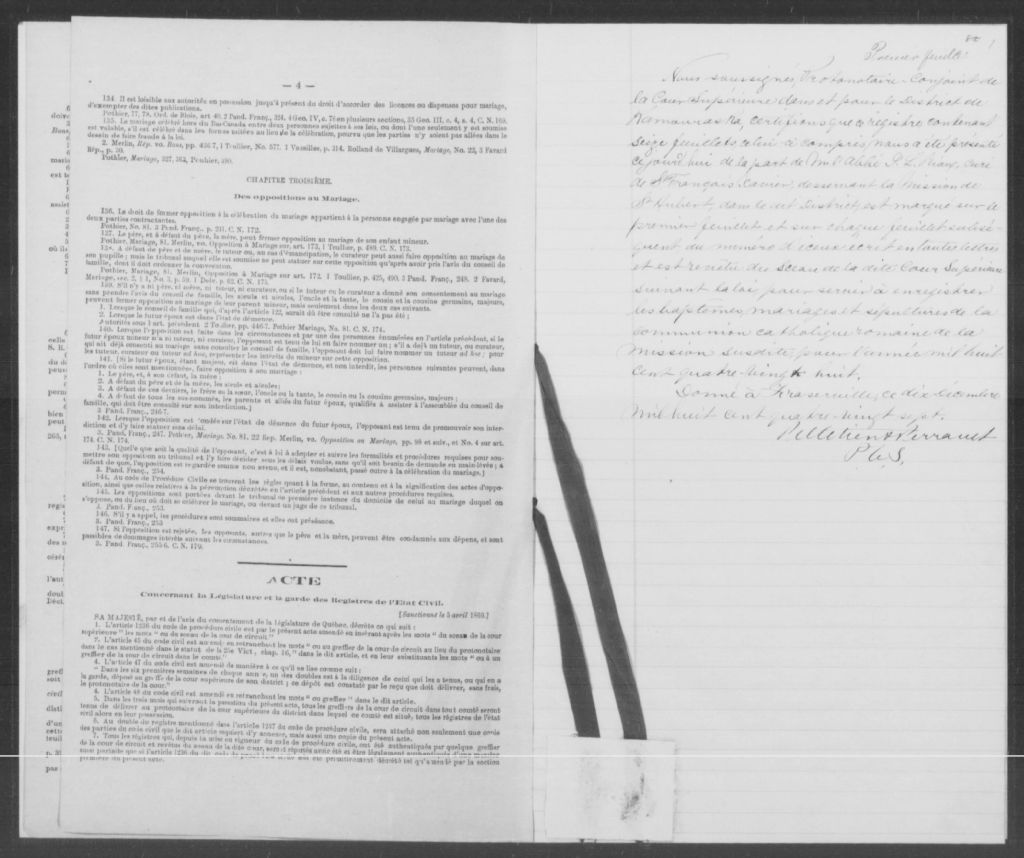 — 4 —
134. Il est loisible aux autorités en possession jusqu'à présent du droit d'accorder des licences ou dispenses pour mariage,
d'exempter des dites publications.
Pothier, 77, 78. Ord. de Blois, art 40. 2 Pand. Franç., 324. 4 Geo. IV, c. 76 en plusieurs sections, 35 Geo. III, c. 4, s. 4, C. N. 169.
135. Le mariage célébré hors du Bas-Canada entre deux personnes sujettes à ses lois, ou dont l'une seulement y est soumise
est valable, s'il est célébré dans les formes usitées au lieu de la célébration, pourvu que les parties n'y soient pas allées dans le
dessein de faire fraude à la loi.
2. Merlin, Rép. vo. Banc, pp. 446 7, 1 Toullier, No. 577. 1 Vazeilles, p. 314. Rolland de Villargues, Mariage, No. 22, 3 Favard
Rép., p. 30.
Pothier, Mariage, 327, 363,
CHAPITRE TROISIÈME.
Des oppositions au Mariage.
136. Le droit de former opposition à la célébration du mariage appartient à la personne engagée par mariage avec l'une des
deux parties contractantes.
Pothier, No. 81. 3 Pand. Franç., p. 241. C. N. 172.
137. Le père, et à défaut du père, la mère, peut former opposition au mariage de son enfant mineur.
Pothier, Mariage, 81. Merlin, vo. Opposition à Mariage sur art. 173, 1 Toullier, p. 489. C. N. 173.
138. A défaut de père et de mère, le tuteur ou, au cas d'émancipation, le curateur peut aussi faire opposition au mariage de
son pupille; mais le tribunal auquel elle est soumise ne peut statuer sur cette opposition qu'après avoir pris l'avis du conseil de
famille, dont il doit ordonner la convocation.
Pothier, Mariage, 81. Merlin, Opposition à Mariage sur art. 172. 1 Toullier, p. 425, 490. 3 Pand. Franç., 248. 2 Favard,
Mariage, sec. 2, § 1, No. 3, p. 59. 1 Delv. p. 62. C. N. 175.
139. S'il n'y a ni père, ni mère, ni tuteur, ni curateur, ou si le tuteur ou le curateur a donné son consentement au mariage
sans prendre l'avis du conseil de famille, les aïeuls et aïeules, l'oncle et la tante, le cousin et la cousine germains, majeurs,
peuvent former opposition au mariage de leur parent mineur, mais seulement dans les deux cas suivants.
1. Lorsque le conseil de famille qui, d'après l'article 122, aurait dû être consulté ne l'a pas été;
2. Lorsque le futur époux est dans l'état de démence.
Autorités sous l'art. précédent 2 Toullier. pp. 446-7. Pothier Mariage, No. 81. C. N. 174.
140. Lorsque l'opposition est faite dans les circonstances et par une des personnes énumérées en l'article précédent, si le
futur époux mineur n'a ni tuteur, ni curateur, l'opposant est tenu de lui en faire nommer un; s'il a déjà un tuteur, ou curateur,
qui ait déjà consenti au mariage sans consulter le conseil de famille, l'opposant doit lui faire nommer un tuteur ad hoc; pour
les tuteur, curateur ou tuteur ad hoc, représenter les intérêts du mineur sur cette opposition.
141. [Si le futur époux, étant majeur, est dans l'état de démence, et non interdit, les personnes suivantes peuvent, dans
l'ordre où elles sont mentionnées, faire opposition à son mariage:
1. Le père, et, à son défaut, la mère;
2. A défaut du père et de la mère, les aïeuls et aïeules;
3. A défaut de ces derniers, le frère ou la sœur, l'oncle ou la tante, le cousin ou la cousine germains, majeurs;
4. A défaut de tous les sus-nommés, les parents et alliés du futur époux, qualifiés à assister à l'assemblée du conseil de
famille, qui doit être consulté sur son interdiction.]
3 Pand. Franç., 246-7.
142. Lorsque l'opposition est fondée sur l'état de démence du futur époux, l'opposant est tenu de promouvoir son inter-
diction et d'y faire statuer sans délai.
3. Pand. Franç., 247. Pothier, Mariage, No. 81, 22 Rép. Merlin, vo. Opposition au Mariage, pp. 98 et suiv., et No. 4 sur art.
174. C. N. 174.
143. [Quelle que soit la qualité de l'opposant, c'est à lui à adopter et suivre les formalités et procédures requises pour sou-
mettre son opposition au tribunal et l'y faire décider sous les délais voulus, sans qu'il soit besoin de demande en main-levée; à
défaut de quoi, l'opposition est regardée comme non avenue, et il est, nonobstant, passé outre à la célébration du mariage.]
3. Pand. Franç., 254.
144. Au code de Procédure Civile se trouvent les règles quant à la forme, au contenu et à la signification des actes d'oppo-
sition, ainsi que celles relatives à la péremption décrétée en l'article précédent et aux autres procédures requises.
145. Les oppositions sont portées devant le tribunal de première instance du domicile de celui au mariage duquel on
s'oppose, ou du lieu où doit se célébrer le mariage, ou devant un juge de ce tribunal.
3. Pand. Franç., 253.
146. S'il y a appel, les procédures sont sommaires et elles ont préséance.
3. Pand. Franç., 253
147. Si l'opposition est rejetée, les opposants, autres que le père et la mère, peuvent être condamnés aux dépens, et sont
passibles de dommages-intérêts suivant les circonstances.
3. Pand. Franç., 255 6. C. N. 179.
ACTE
Concernant la Législature et la garde des Registres de l'Etat Civil.
[Sanctionné le 5 avril 1869.]
SA MAJESTÉ, par et de l'avis du consentement de la législature de Québec, décrète ce qui suit:
1. L'article 1236 du code de procédure civile est par le présent acte amendé en insérant après les mots " du sceau de la cour
supérieure " les mots " ou du sceau de la cour de circuit."
2. L'article 45 du code civil est amendé en retranchant les mots " ou au greffier de la cour de circuit au lieu du protonotaire
dans le cas mentionné dans le statut de la 25e Vict., chap. 16," dans le dit article, et en leur substituant les mots " ou à un
greffier de la cour de circuit dans le comté."
4. L'article 47 du code civil est amendé de manière à ce qu'il se lise comme suit:
" Dans les six premières semaines de chaque année, un des doubles est à la diligence de celui qui les a tenus, ou qui en a
la garde, déposé au greffe de la cour supérieure de son district; ce dépôt est constaté par le reçu que doit délivrer, sans frais,
le protonotaire de la cour."
4. L'article 48 du code civil est amendé en retranchant les mots " ou greffier " dans le dit article.
5. Dans les trois mois qui suivront la passation du présent acte, tous les greffiers de la cour de circuit dans tout comté seront
tenus de délivrer au protonotaire de la cour supérieure du district dans lequel ce comté est situé, tous les registres de l'état
civil alors en leur possession.
6. Au double du registre mentionné dans l'article 1237 du code de procédure civile, sera attaché non seulement une copie
des parties du code civil que le dit article requiert d'y annexer, mais aussi une copie du présent acte.
7. Tous les registres qui, depuis la mise en vigueur du code de procédure civile, ont été authentiqués par quelque greffier
de la cour de circuit et revêtus du sceau de la dite cour, seront réputés avoir été et être légalement authentiqués d'une manière
aussi parfaite que si l'article 1236 du dit code de procédure civile eut été primitivement décrété tel qu'amendé par la section
première du présent acte.
Premier feuillet
Nous soussignés, Protonotaire-Conjoint de
la Cour Supérieure dans et pour le District de
Kamouraska, certifions que ce registre contenant
seize feuillets celui-ci compris, nous a été présenté
ce jourd'hui de la part de Mr l'Abbé curé
de St François Xavier, desservant la Mission de
St Hubert, dans le dit District est marqué sur le
premier feuillet et sur chaque feuillet subsé-
quent du numéro d'iceux écrit en toutes lettres
et est revêtu du Sceau de la dite Cour Supérieure
suivant la loi pour servir à enregistrer
les baptêmes, mariages et sépultures de la
communion catholique romaine de la
mission susdite pour l'année mil huit
cent quatre-vingt huit.
Donné à Fraserville, ce dix décembre
mil huit cent quatre-vingt sept.
Pelletier & Perrault
P. C. S.